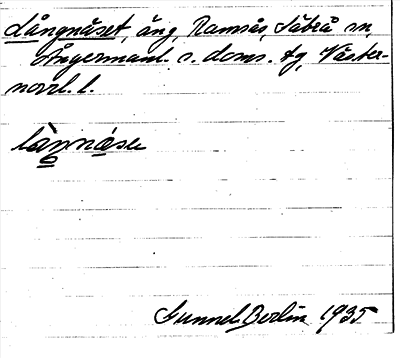 Långnäset, äng, Ramsås, Säbrå sn,
Ångermanl. s. doms. tg, Väster-
norrl. l.
Gunnel Berlin 1935